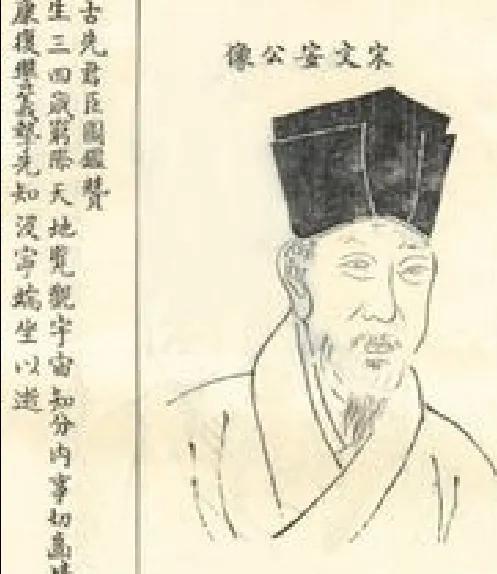 宋文安公像
古先君臣圖鑑贊
生三四歲窮際天地覽觀宇宙知分內事切
康復義先知沒寧端坐以逝